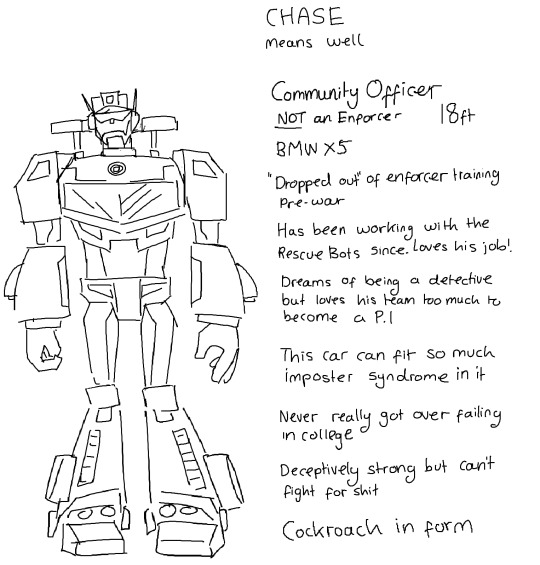 CHASE
means well
Community Officer
NOT an Enforcer 18ft
BMW X5
"Dropped out" of enforcer training
pre-war
Has been working with the
Rescue Bots since. Loves his job!
Dreams of being a detective
but loves his team too much to
become a P.I
This car can fit so much
imposter syndrome in it
Never really got over failing
in college
Deceptively strong but can't
fight for shit
Cockroach in form